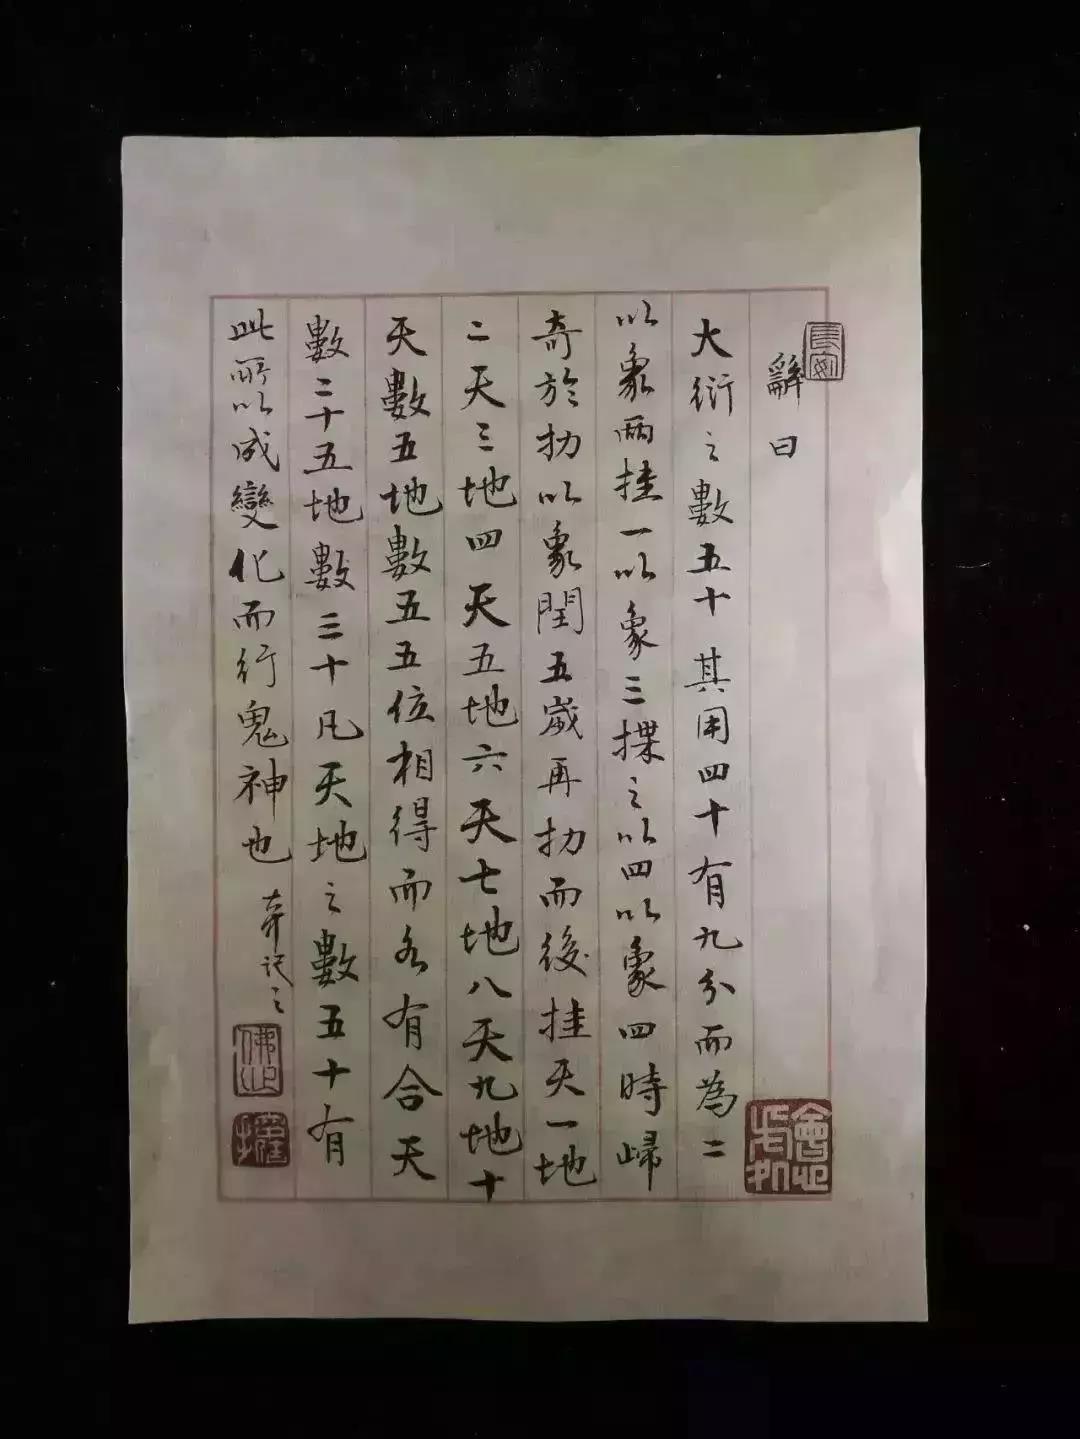 辭曰
大衍之數五十其用四十有九分而為二
以象兩挂一以象三揲之以四以象四時歸
奇於扐以象閏五歲再扐而後挂天一地
二天三地四天五地六天七地八天九地十
天數五地數五五位相得而各有合天
數二十五地數三十凡天地之數五十有
此所以成變化而行鬼神也
記之